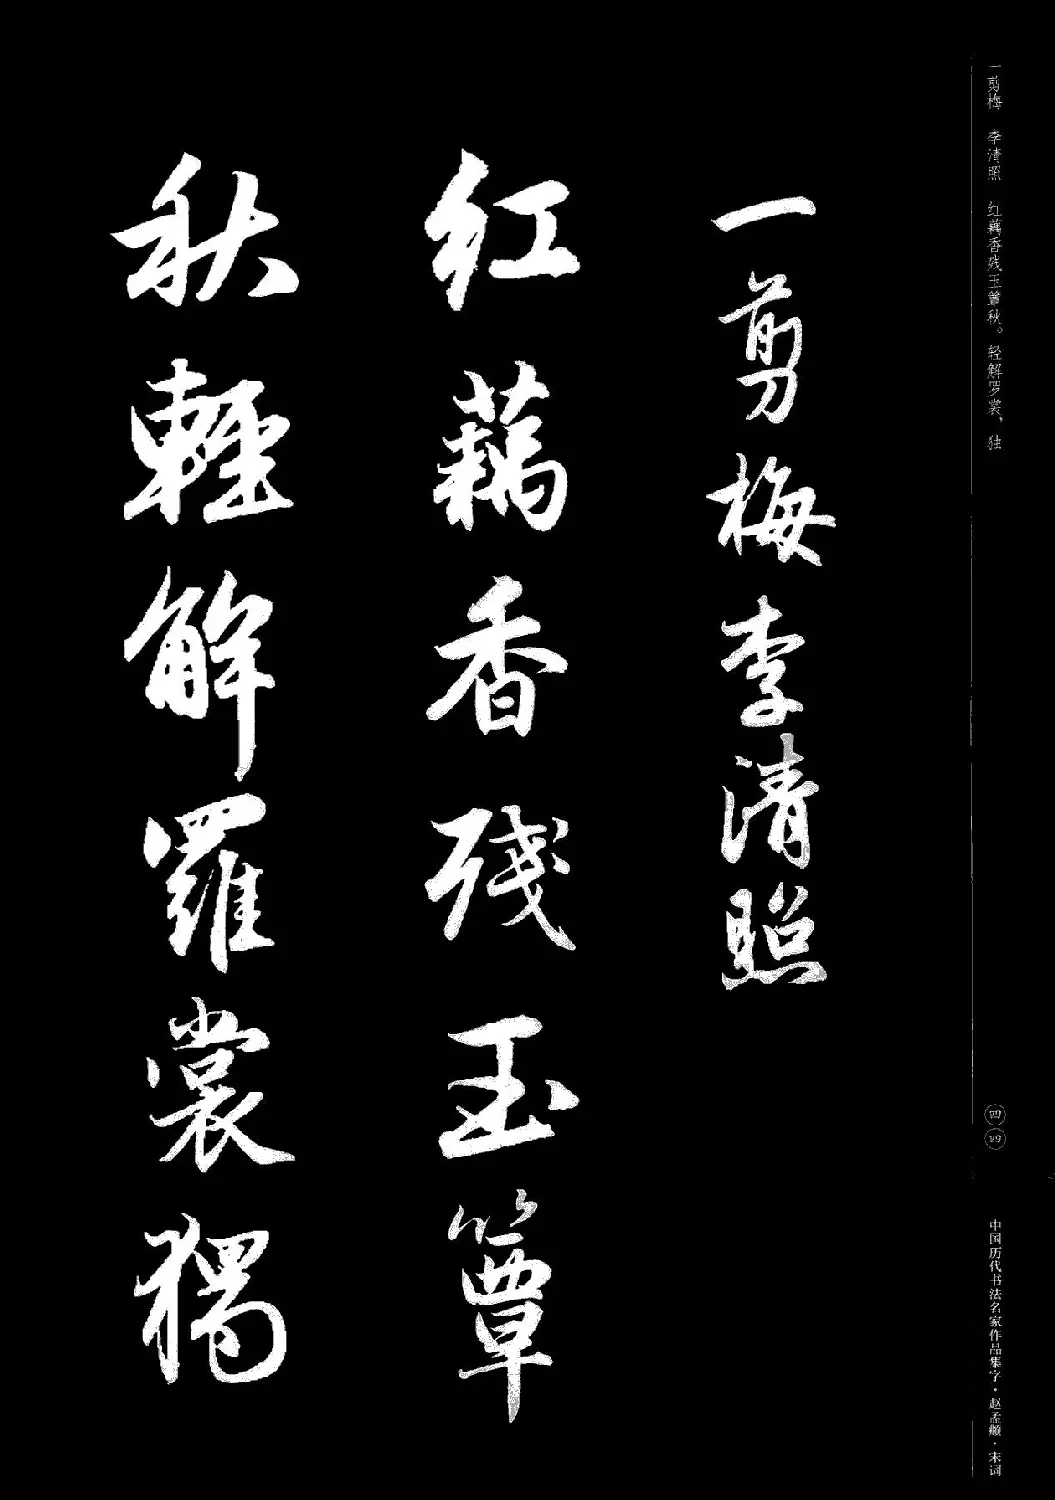 一剪梅 李清照 红藕香残玉簟秋。轻解罗裳，独
四四
中国历代书法名家作品集字·赵孟頫·宋词
一剪梅李清照
红藕香残玉簟
秋輕解羅裳獨